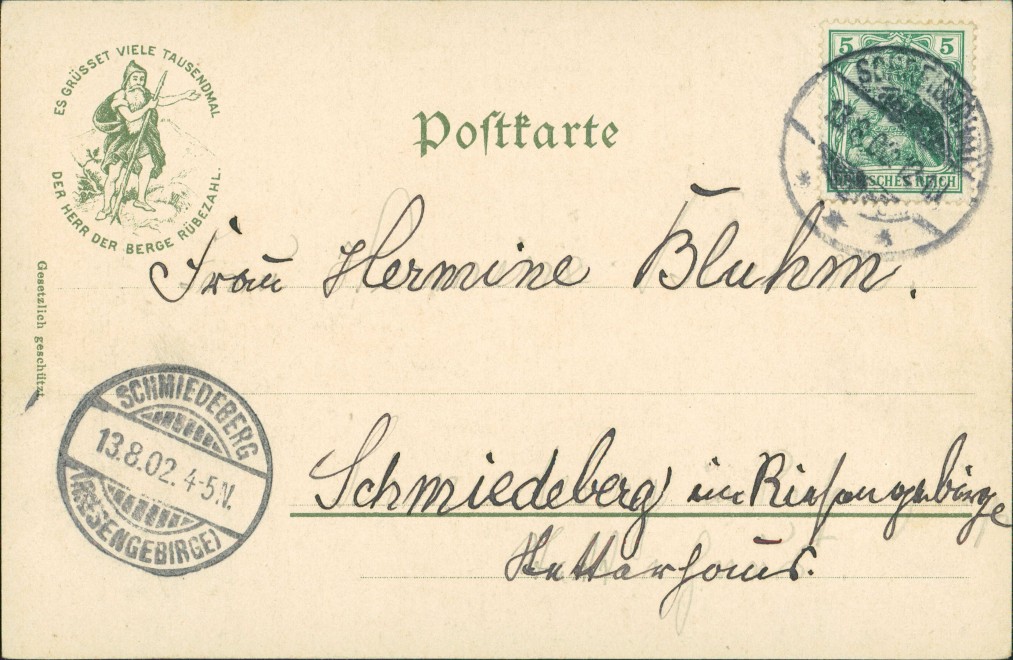 ES GRÜSSET VIELE TAUSENDMAL
DER HERR DER BERGE RÜBEZAHL.
Postkarte
5 5
DEUTSCHES REICH
13.8.02
Gesetzlich geschützt
Frau Hermine Bluhm.
SCHMIEDEBERG
13.8.02. 4-5 N.
(RIESENGEBIRGE)
Schmiedeberg im Riesengebirge